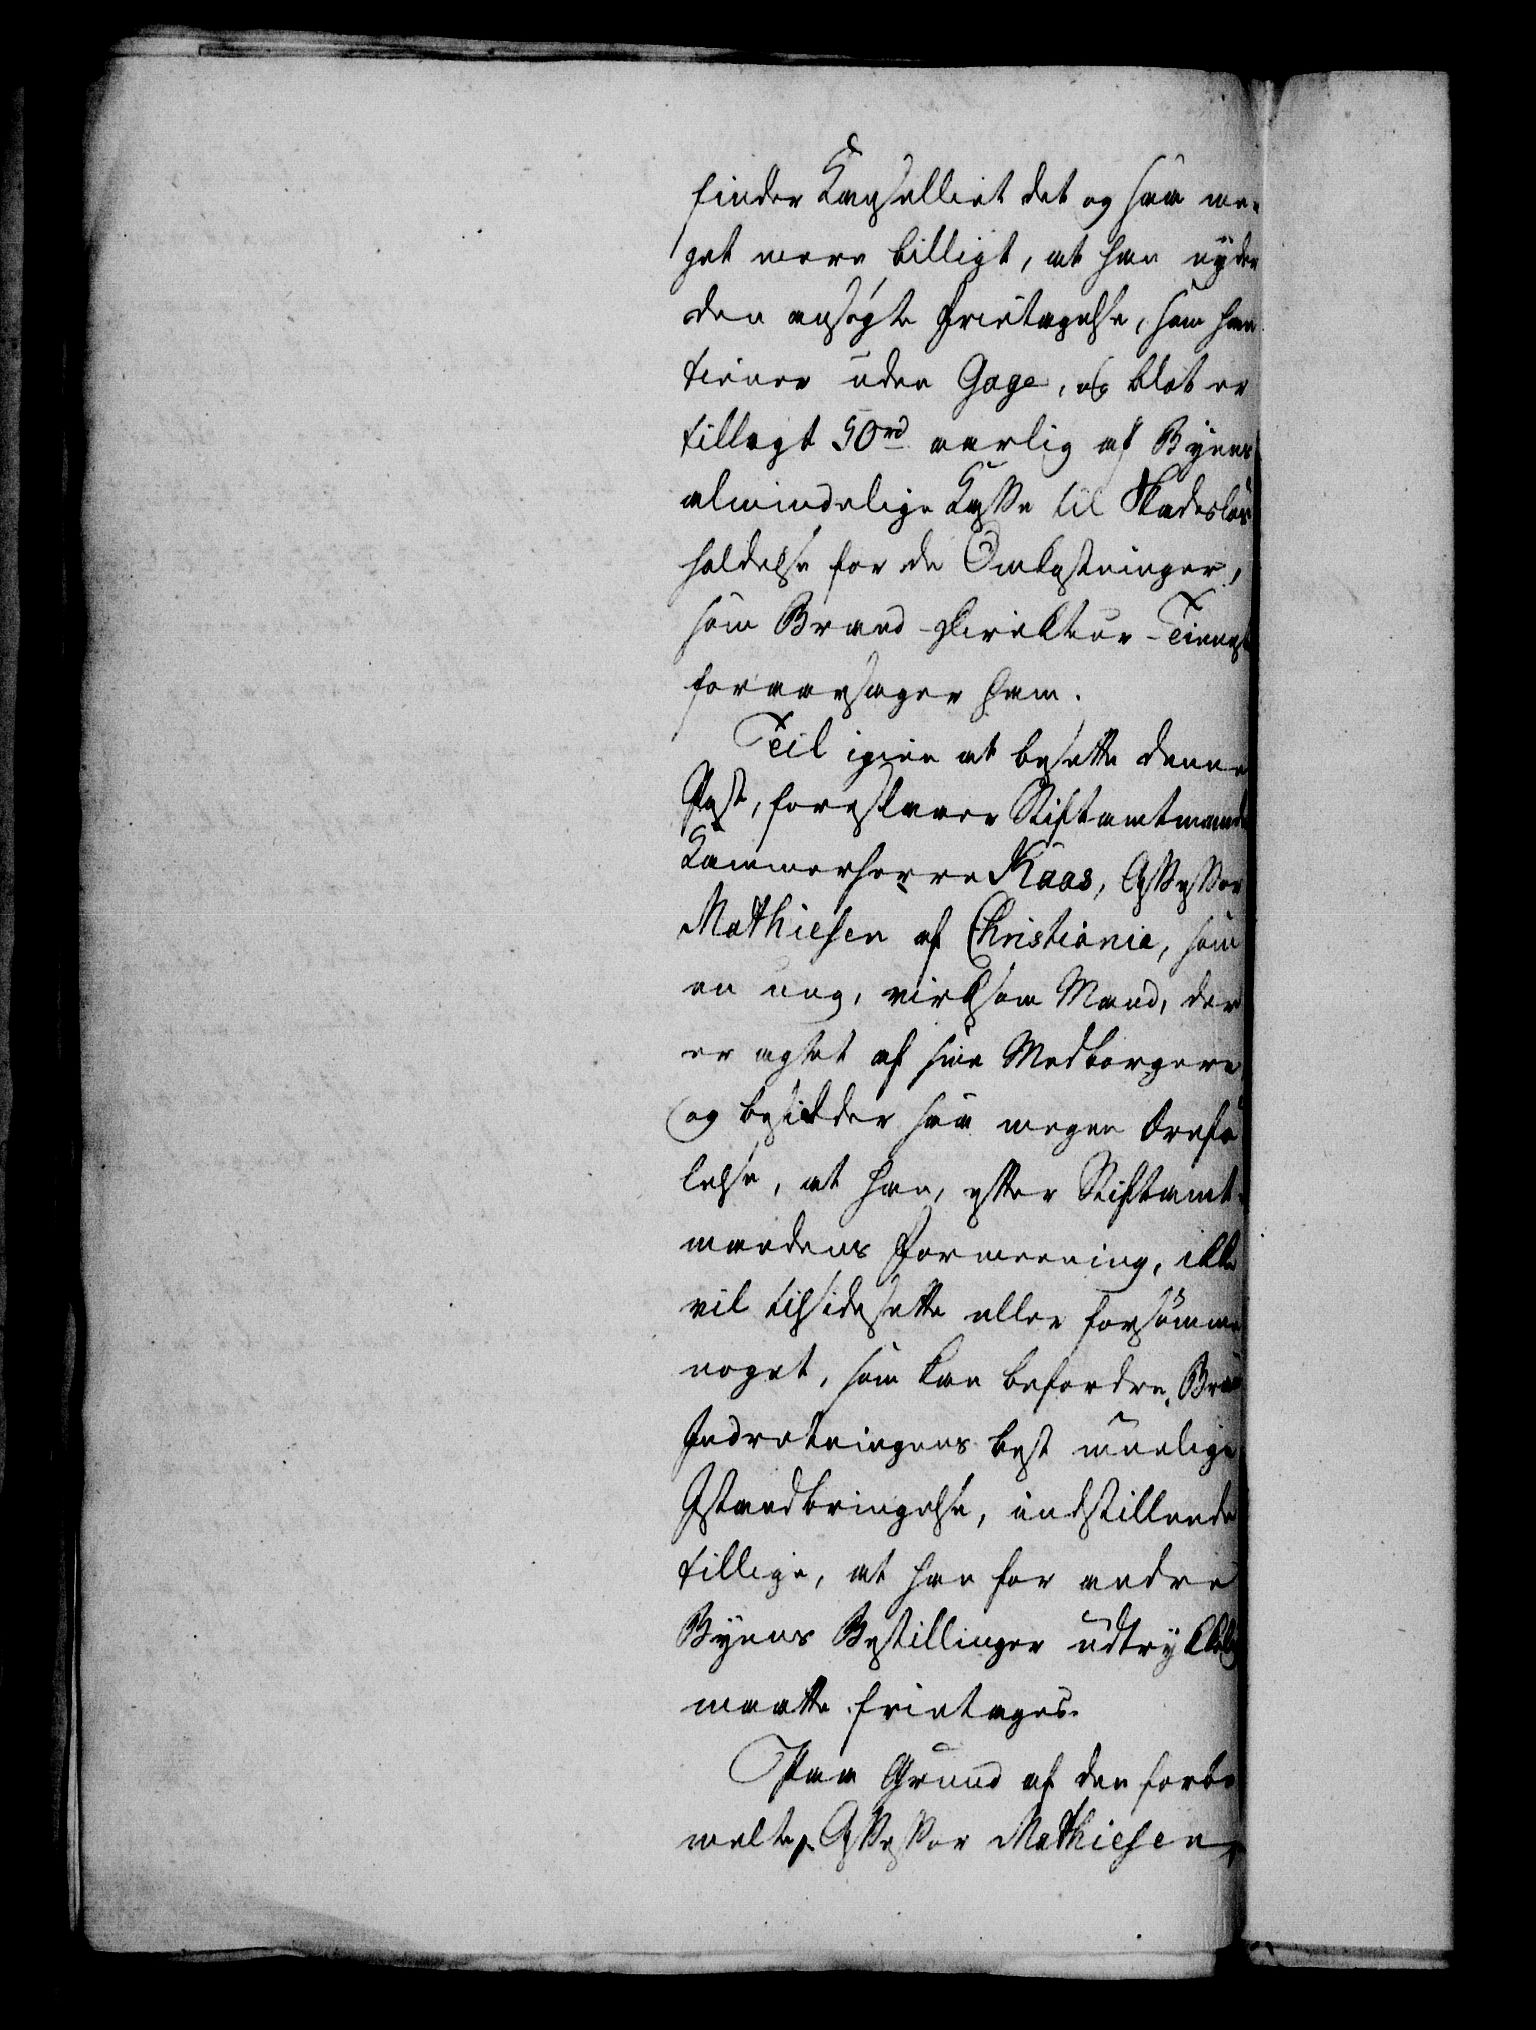 finder Kanselliet det og saa me-
get mere billigt, at han nyder
den ansøgte Fritagelse, som han
tiener uden Gage, og blot er
tillagt 50 rd aarlig af Byens
almindelige Kasse til Skadesløs
holdelse for de Omkostninger,
som Brand-Direkteur-Tienest
foraarsager ham.
Til igien at besette denne
Post, foreslaaer Stiftamtmand
Kammerherre Kaas, Assessor
Mathiesen af Christiania, som
en ung, virksom Mand, der
er agtet af sine Medborgere
og besidder saa megen Ærefø
lelse, at han, efter Stiftamt-
mandens Formeening, ikke
vil tilsidesette eller forsømme
noget, som kan befordre Bran
Indretningens best muelige
Istandbringelse, indstillende
tillige, at han for andre
Byens Bestillinger udtrykkelig
maatte frietages.
Paa Grund af den forbe
melte Assessor Mathiesen